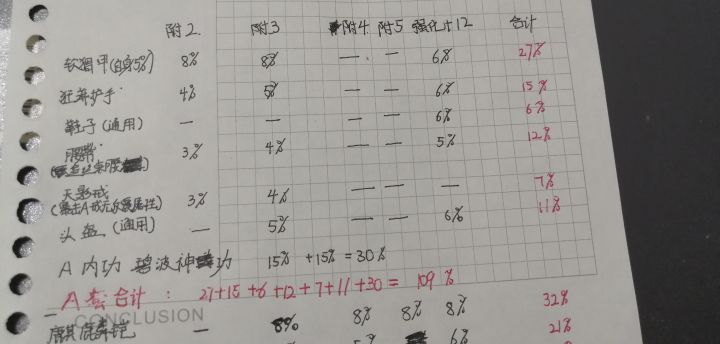 附2 附3 附4 附5 强化+12 合计
软猬甲(自身5%) 8% 8% — — 6% 27%
狂暴护手 4% 5% — — 6% 15%
鞋子(通用) — — — — 6% 6%
腰带 3% 4% — — 5% 12%
天影戒 3% 4% — — — 7%
头盔(通用) — 5% — — 6% 11%
A内功 碧波神功 15% +15% = 30%
A套合计: 27+15+6+12+7+11+30 = 109%
CONCLUSION
麒麟铠 — 8% 8% 8% 8% 32%
6% 21%